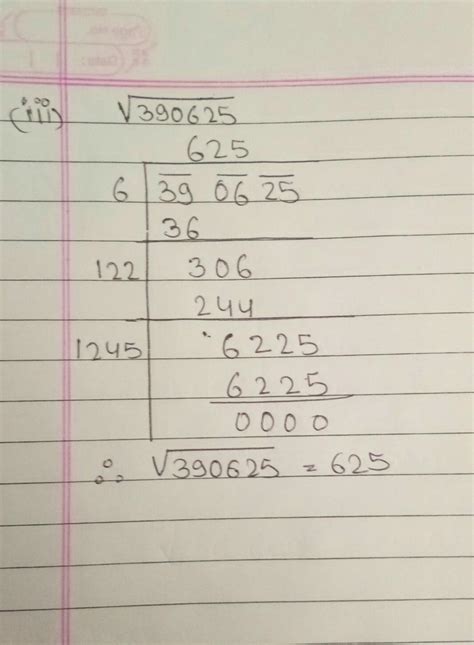 (iii) √390625
625
6 39 06 25
36
122 306
244
1245 6225
6225
0000
∴ √390625 = 625